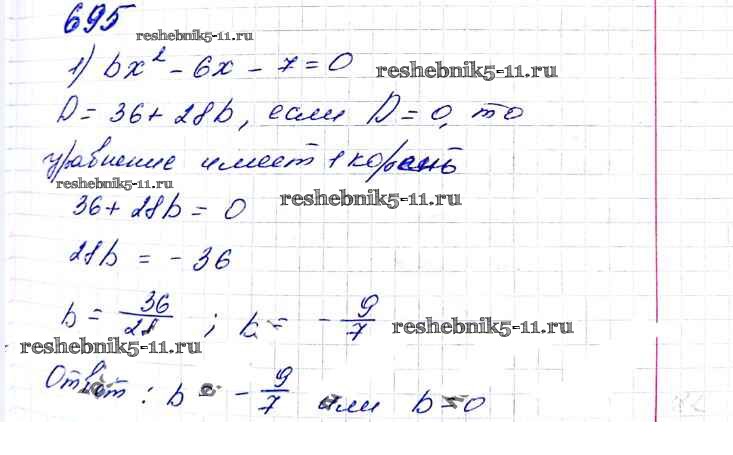 695
reshebnik5-11.ru
1) bx² - 6x - 7 = 0
reshebnik5-11.ru
D = 36 + 28b, если D = 0, то
уравнение имеет 1 корень
reshebnik5-11.ru
36 + 28b = 0
reshebnik5-11.ru
28b = - 36
b = 36/28 ; b = - 9/7
reshebnik5-11.ru
reshebnik5-11.ru
Ответ : b = - 9/7 или b = 0